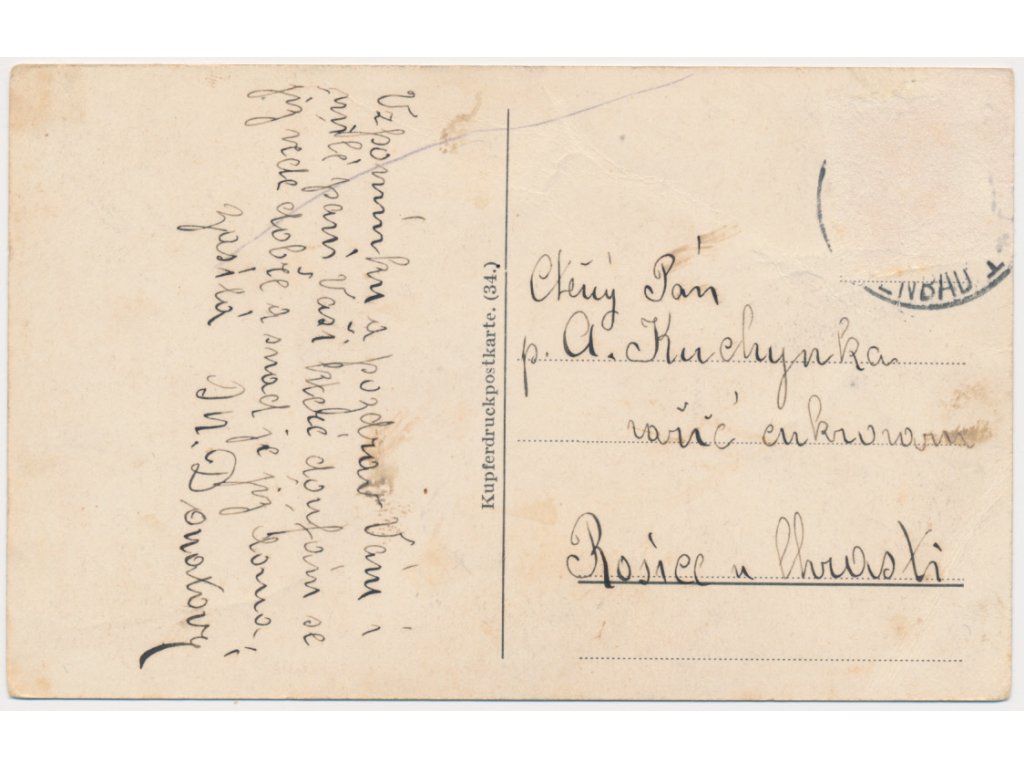 Vzpomínku a pozdrav Vám i
milé paní Vaší které doufám se
jíž vede dobře a snad je již doma
zasílá
M. Donatovy
Kupferdruckpostkarte. (34.)
Ctěný Pán
p. A. Kuchynka
vařič cukrovaru
Rosice u Chrasti
ENBAD 1